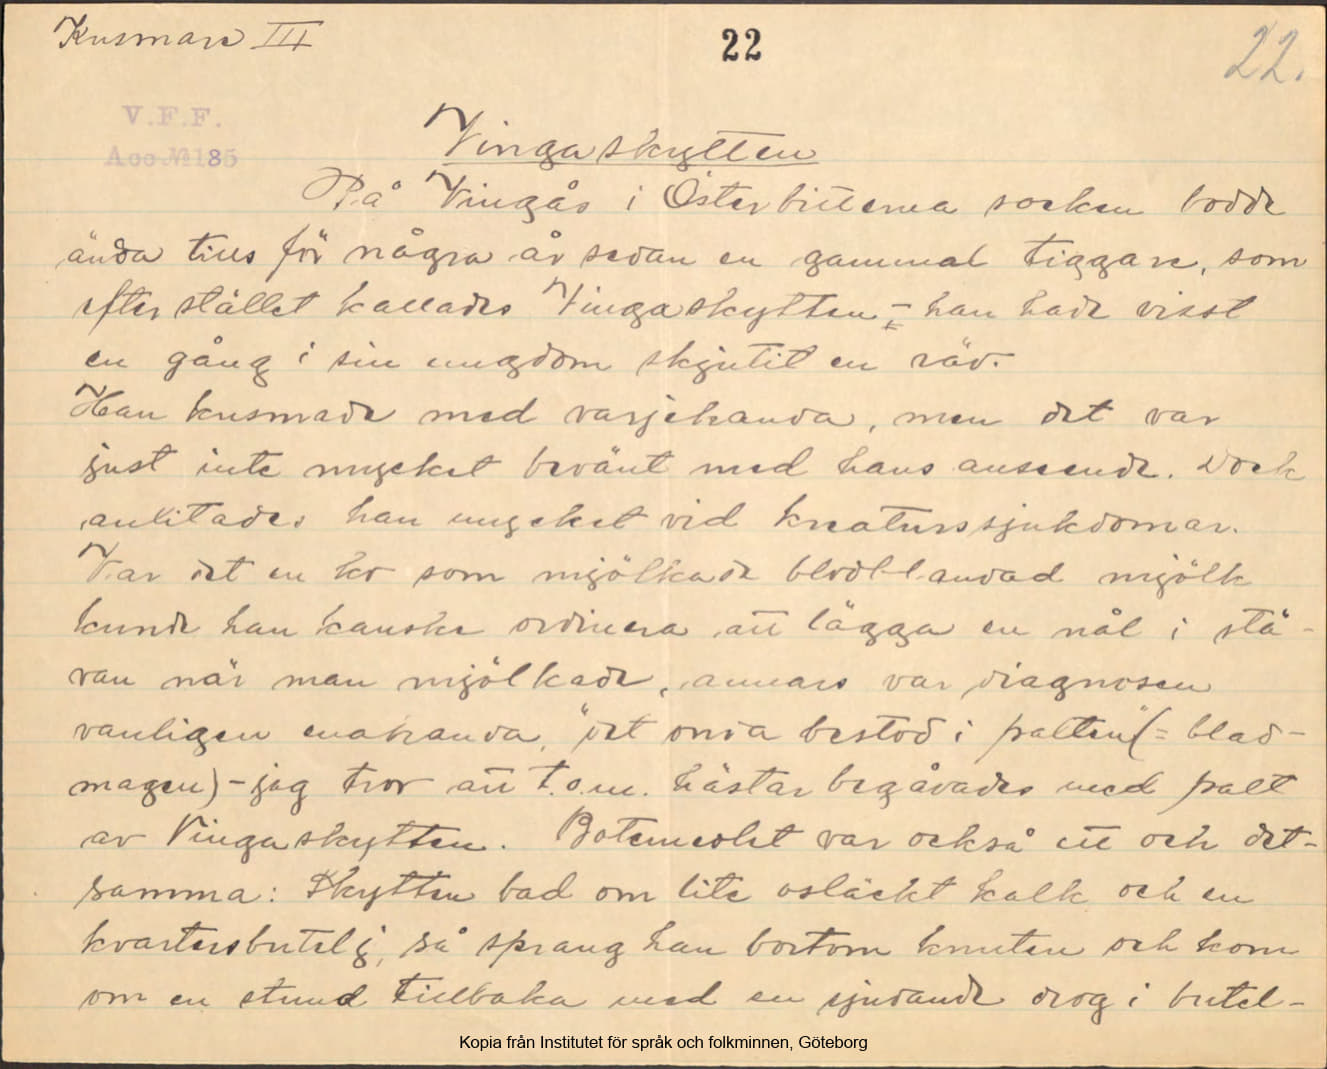 Kusmare III
22
22.
V.F.F.
Acc. № 185
Vingaskytten
På Vingås i Österbitterna socken bodde
ända tills för några år sedan en gammal tiggare, som
efter stället kallades Vingaskytten - han hade visst
en gång i sin ungdom skjutit en räv.
Han kusmade med varjehanda, men det var
just inte mycket bevänt med hans anseende. Dock
anlitades han mycket vid kreaturssjukdomar.
Var det en ko som mjölkade blodblandad mjölk
kunde han kanske ordinera att lägga en nål i stä-
van när man mjölkade, annars var diagnosen
vanligen enahanda, "det onda bestod i palten" (= blad-
magen) - jag tror att t.o.m. hästar begåvades med palt
av Vingaskytten. Botemedlet var också ett och det-
samma: Skytten bad om lite osläckt kalk och en
kvartersbutelj, så sprang han bortom knuten och kom
om en stund tillbaka med en sjudande drog i butel-
Kopia från Institutet för språk och folkminnen, Göteborg